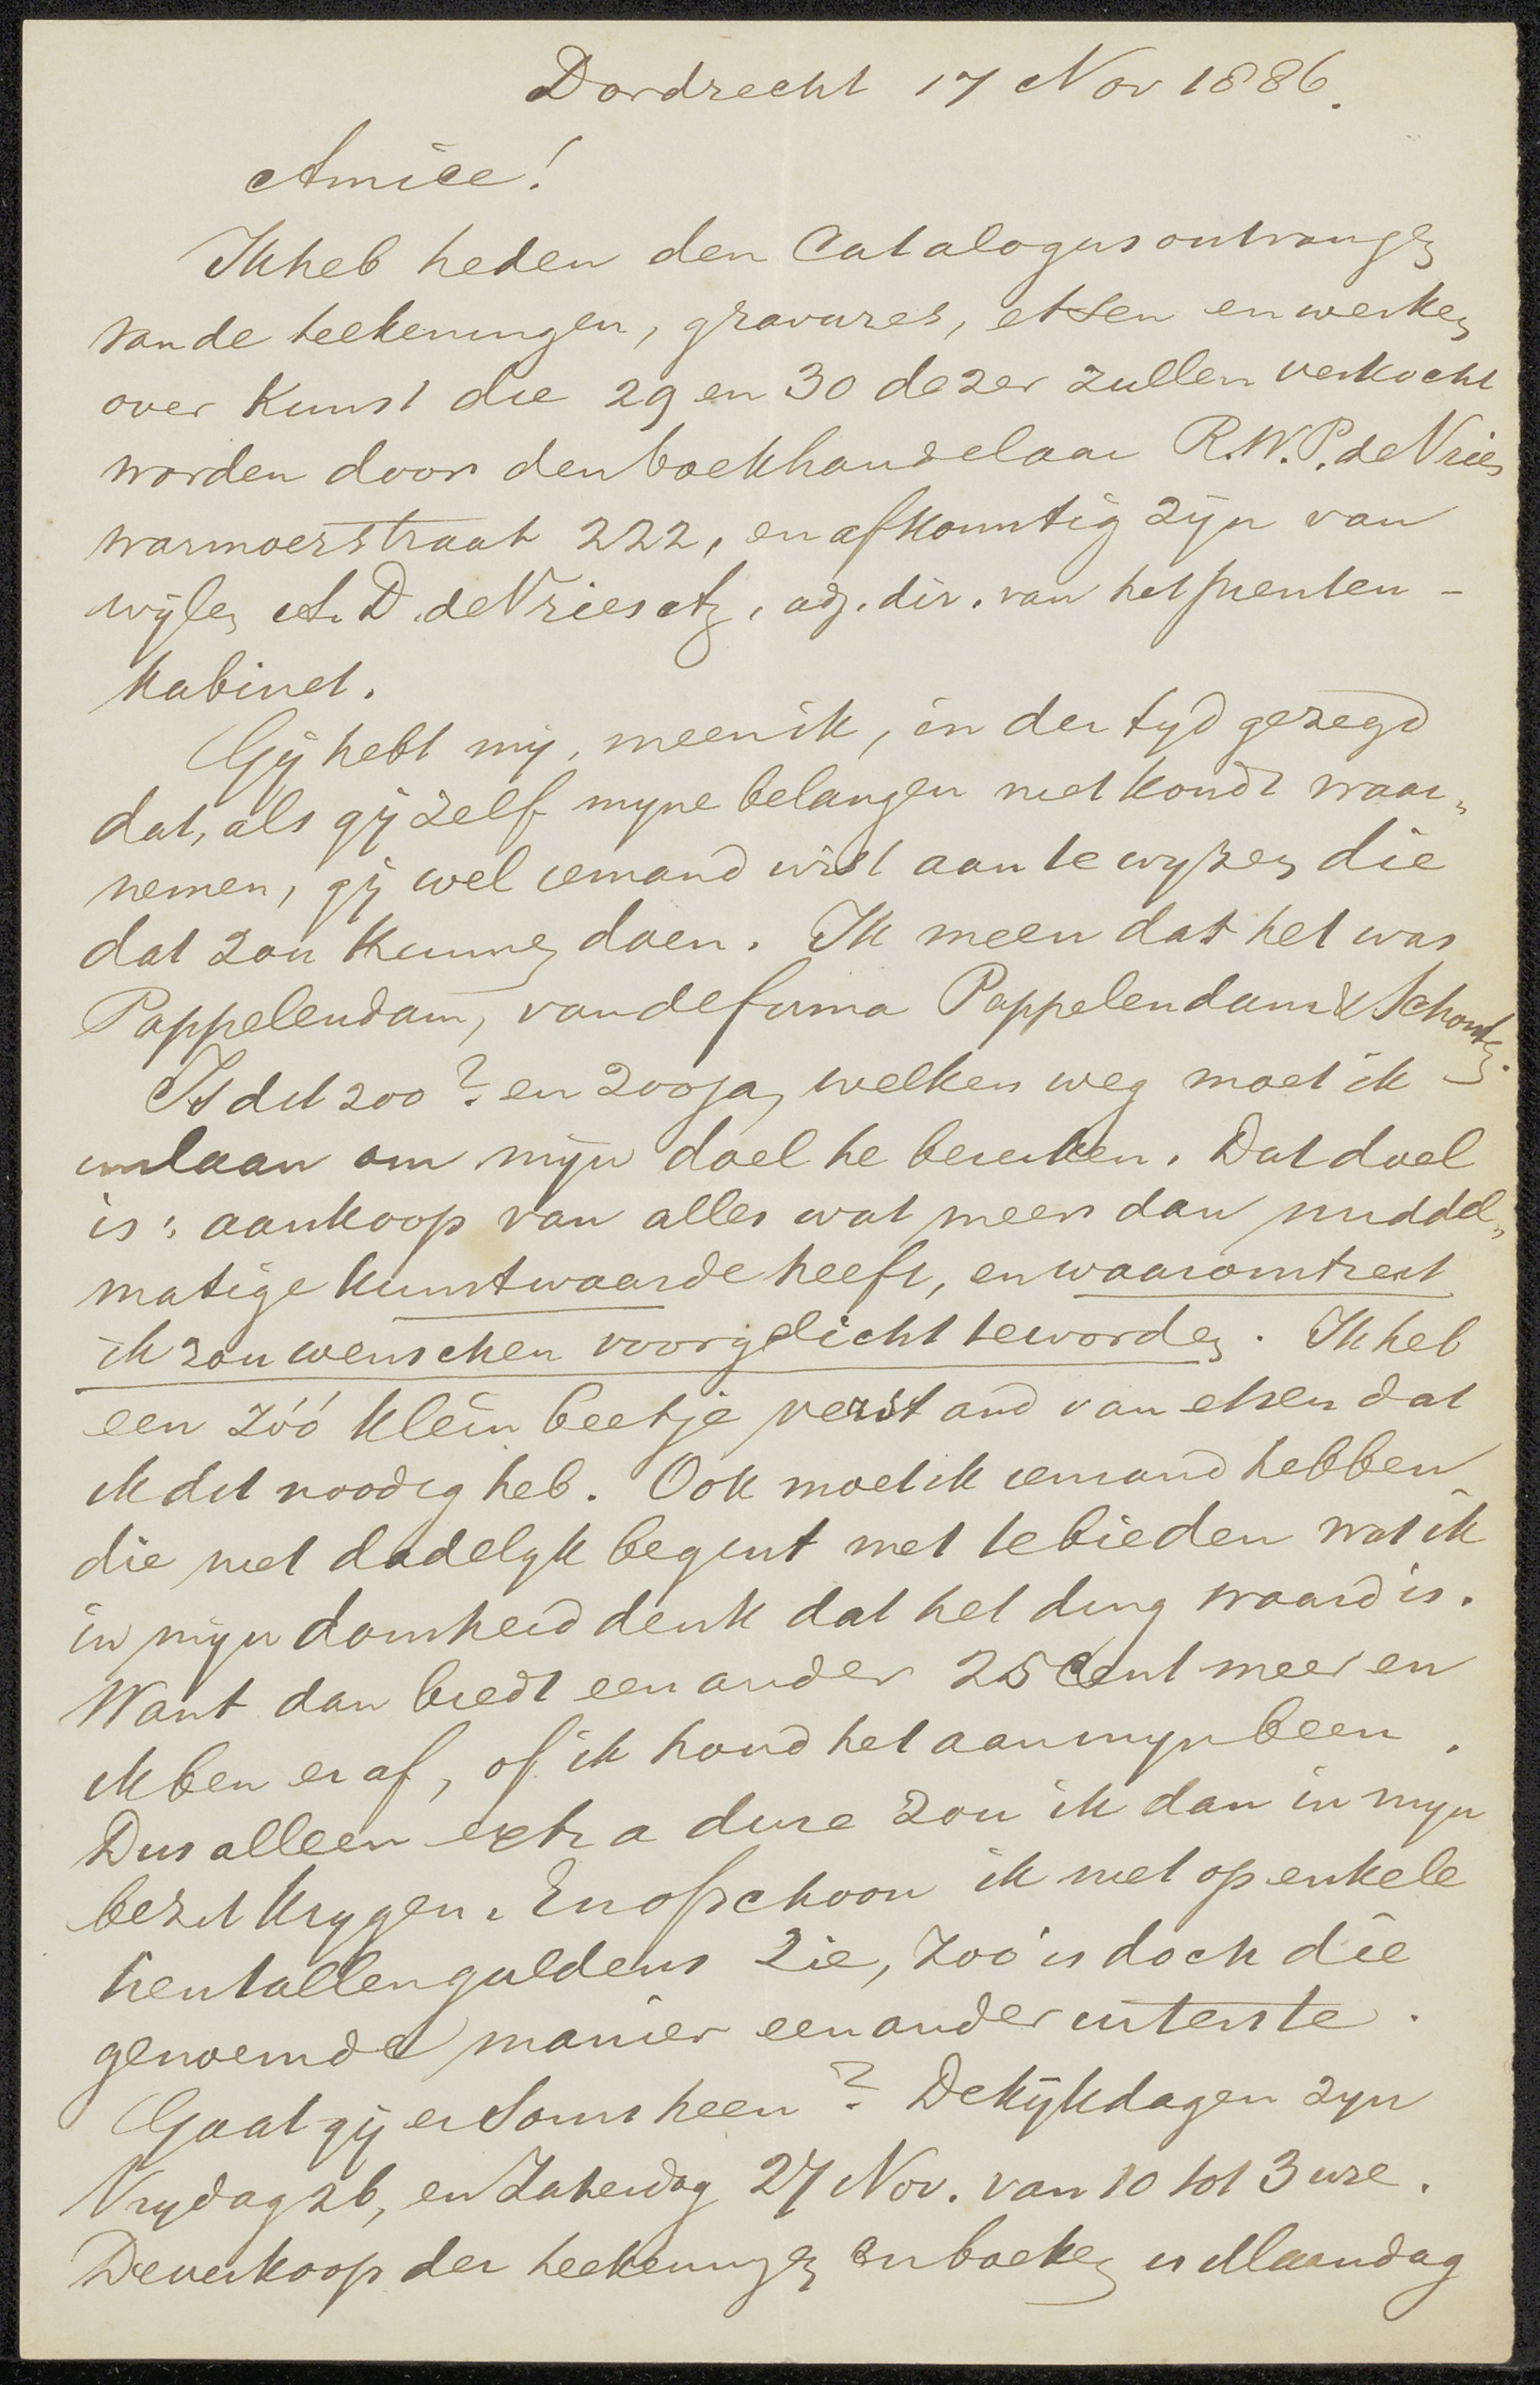 Dordrecht 17 Nov 1886.
Amice!
Ik heb heden den Catalogus ontvangen
van de teekeningen, gravures, etsen en werken
over Kunst die 29 en 30 dezer zullen verkocht
worden door den boekhandelaar R.W.P. de Vries
warmoesstraat 222, en afkomstig zijn van
wijlen A. D. de Vries Az, adj. dir. van het prenten-
kabinet.
Gij hebt mij, meen ik, in der tijd gezegd
dat, als gij zelf mijne belangen niet kondt waar„
nemen, gij wel iemand wist aan te wijzen die
dat zou kunnen doen. Ik meen dat het was
Pappelendam, van de firma Pappelendam & Schouten.
Is dit zoo? en zoo ja, welken weg moet ik
inslaan om mijn doel te bereiken. Dat doel
is: aankoop van alles wat meer dan middel„
matige kunstwaarde heeft, en waaromtrent
ik zou wenschen voorgelicht te worden. Ik heb
een zóó klein beetje verstand van etsen dat
ik dit noodig heb. Ook moet ik iemand hebben
die niet dadelijk begint met te bieden wat ik
in mijn domheid denk dat het ding waard is.
Want dan biedt een ander 25 Cent meer en
ik ben er af, of ik houd het aan mijn been.
Dus alleen extra dure zou ik dan in mijn
bezit krijgen. En ofschoon ik niet op enkele
tientallen guldens zie, zoo is doch die
genoemde manier een ander uiterste.
Gaat gij er soms heen? De kijkdagen zijn
Vrijdag 26, en Zaterdag 27 Nov. van 10 tot 3 ure.
De verkoop der teekeningen en boeken is Maandag